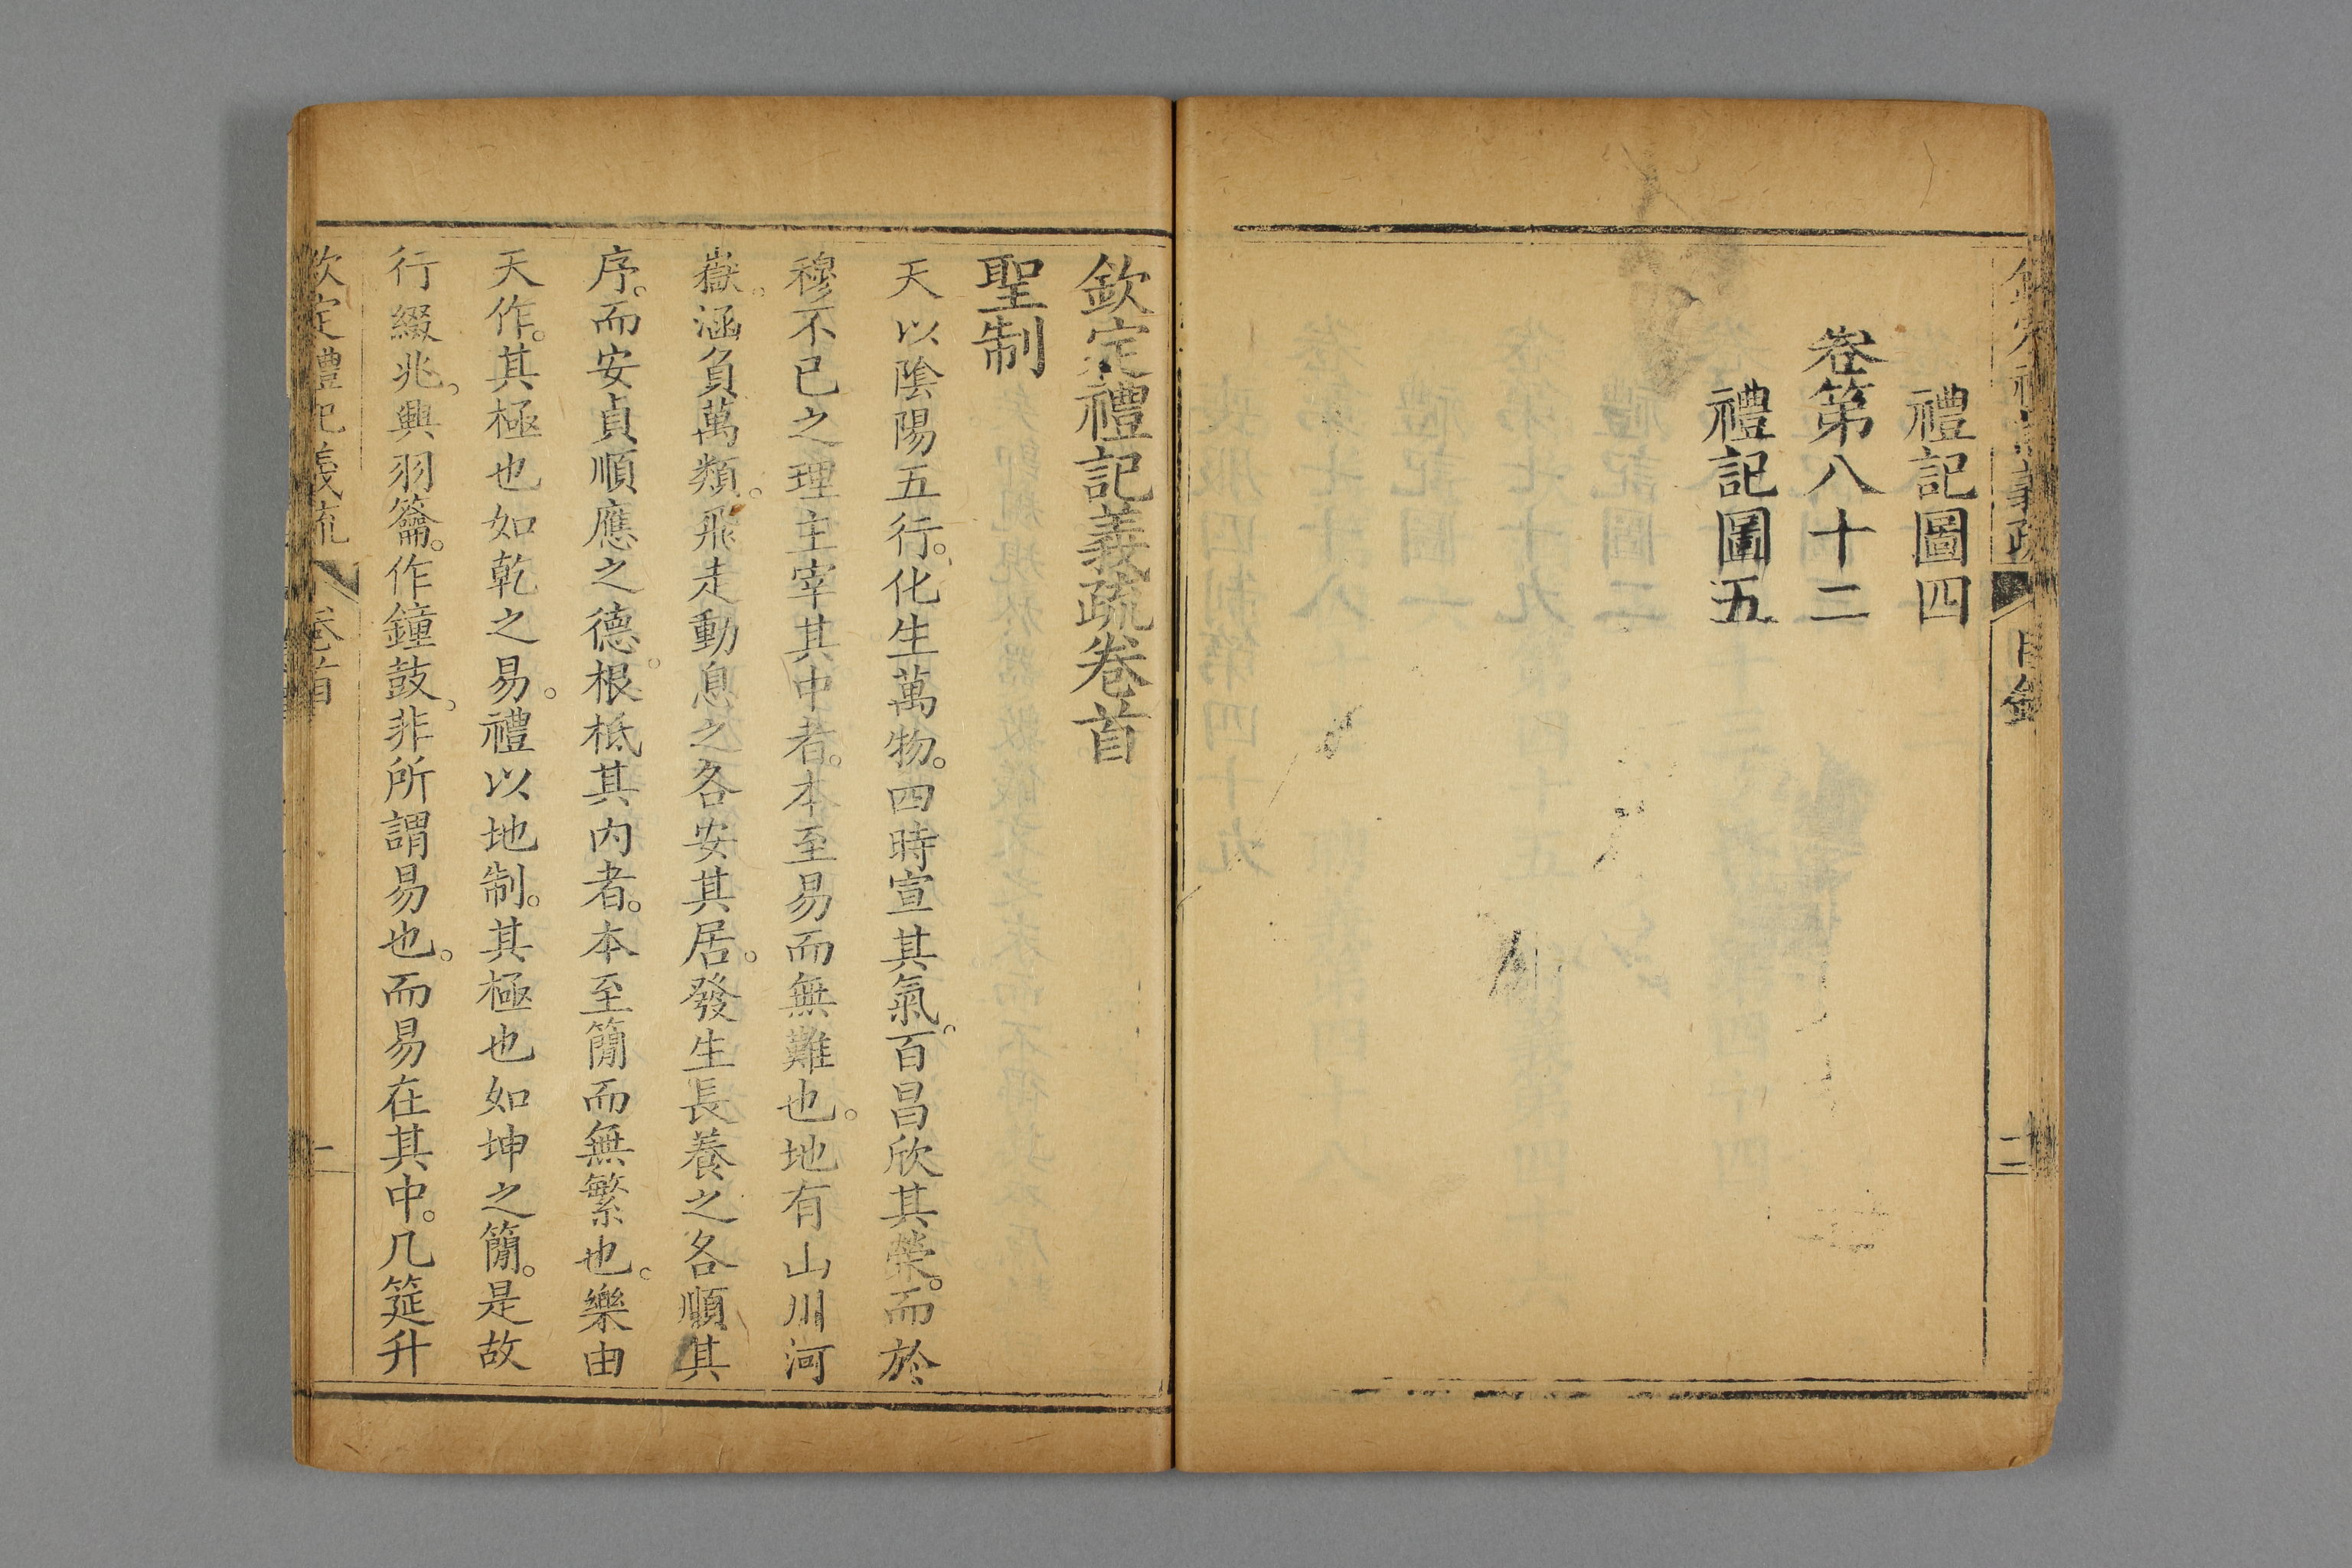 欽定禮記義疏 目錄 二
禮記圖四
卷第八十二
禮記圖五
欽定禮記義疏卷首
聖制
天以陰陽五行。化生萬物。四時宣其氣。百昌欣其榮。而於
穆不已之理主宰其中者。本至易而無難也。地有山川河
嶽。涵負萬類。飛走動息之各安其居。發生長養之各順其
序。而安貞順應之德。根柢其內者。本至簡而無繁也。樂由
天作。其極也如乾之易。禮以地制。其極也如坤之簡。是故
行綴兆。興羽籥。作鐘鼓。非所謂易也。而易在其中。几筵升
欽定禮記義疏 卷首 一